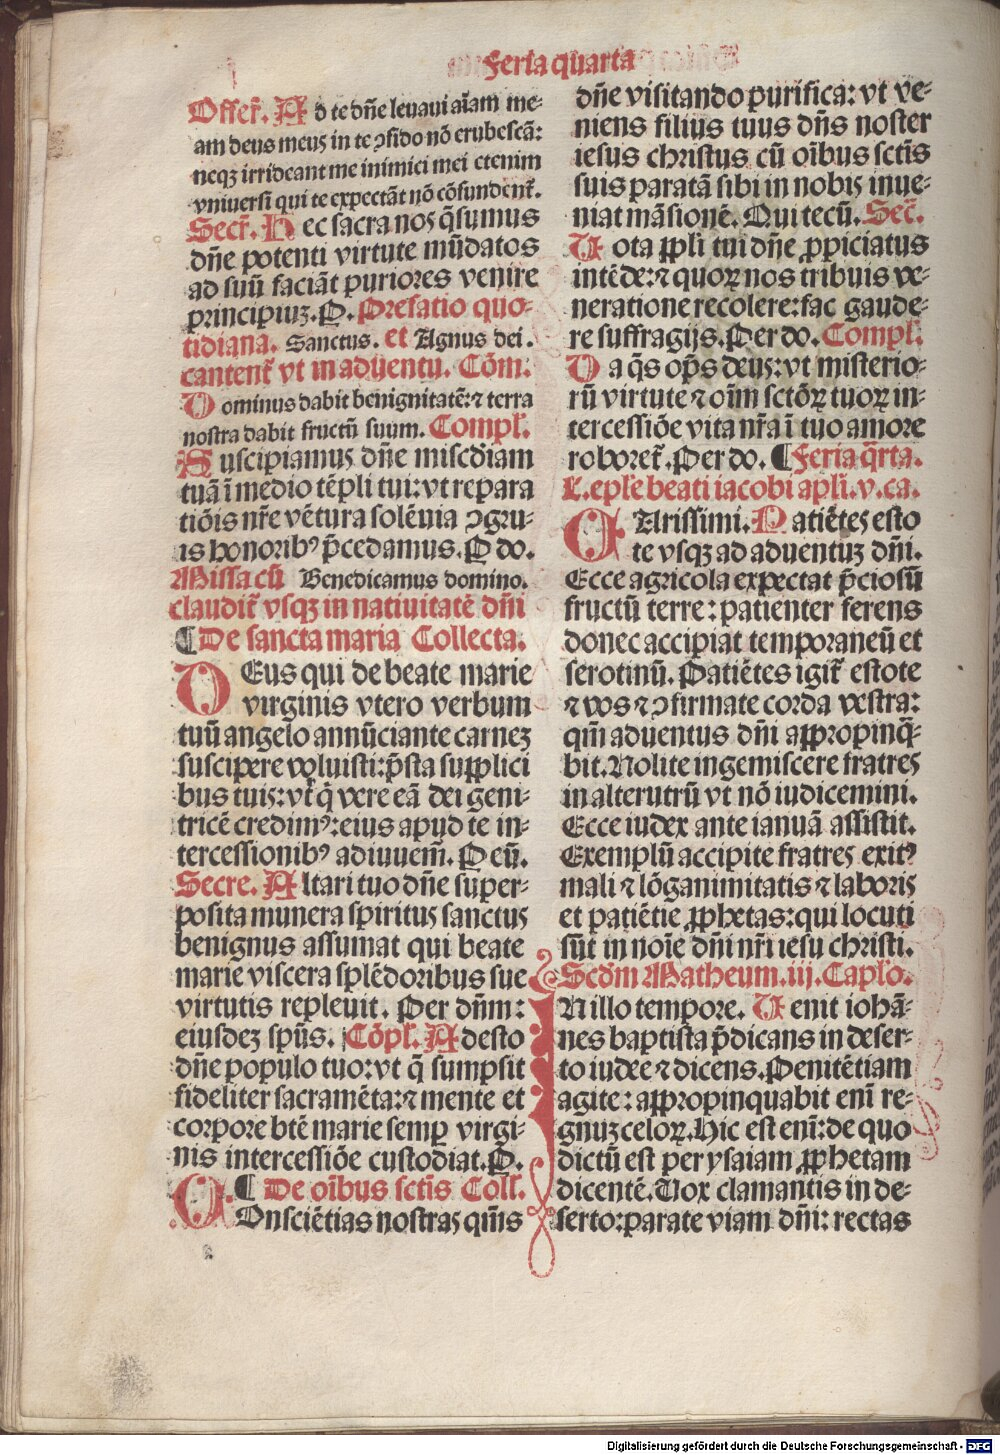 Feria quarta
Offert̃. Ad te dñe leuaui aĩam me-
am deus meus in te ꝯfido nõ erubescã:
neqꝫ irrideant me inimici mei etenim
vniuersi qui te expectãt nõ cõfundent̃.
Secr̃. Hec sacra nos q̃sumus
dñe potenti virtute mũdatos
ad suũ faciãt puriores venire
principiuꝫ. P. Prefatio quo-
tidiana. Sanctus. et Agnus dei.
cantent̃ vt in aduentu. Cõm.
Dominus dabit benignitatẽ: ⁊ terra
nostra dabit fructũ suum. Compl̃.
Suscipiamus dñe miscd̃iam
tuã ĩ medio tẽpli tui: vt repara
tiõis nr̃e vẽtura solẽnia ꝯgru-
is honoribꝰ p̃cedamus. P do.
Missa cũ Benedicamus domino.
claudit̃ vsqꝫ in natiuitatẽ dñi
¶ De sancta maria Collecta.
DEus qui de beate marie
virginis vtero verbum
tuũ angelo annũciante carneꝫ
suscipere voluisti: p̃sta supplici
bus tuis: vt q̃ vere eã dei geni-
tricẽ credimꝰ: eius apud te in-
tercessionibꝰ adiuuem̃. P eũ.
Secre. Altari tuo dñe super-
posita munera spiritus sanctus
benignus assumat qui beate
marie viscera splẽdoribus sue
virtutis repleuit. Per dñm:
eiusdeꝫ sp̃us. Cõpl̃. Adesto
dñe populo tuo: vt q̃ sumpsit
fideliter sacramẽta: ⁊ mente et
corpore btẽ marie semꝑ virgi-
nis intercessiõe custodiat. P.
¶ De oĩbus sctĩs Coll̃.
COnsciẽtias nostras qũis
dñe visitando purifica: vt ve-
niens filius tuus dñs noster
iesus christus cũ oĩbus sctĩs
suis paratã sibi in nobis inue-
niat mãsionẽ. Qui tecũ. Sec̃.
Uota ppl̃i tui dñe ꝓpiciatus
intẽde: ⁊ quoꝝ nos tribuis ve-
neratione recolere: fac gaude-
re suffragijs. Per do. Compl̃.
Da q̃s op̃s deus: vt misterio-
rũ virtute ⁊ oĩm sctõꝝ tuoꝝ in-
tercessiõe vita nr̃a ĩ tuo amore
roboret̃. Per do. ¶ Feria q̃rta.
L. epl̃e beati iacobi apl̃i. v. ca.
CArissimi. Patiẽtes esto
te vsqꝫ ad aduentuꝫ dñi.
Ecce agricola expectat p̃ciosũ
fructũ terre: patienter ferens
donec accipiat temporaneũ et
serotinũ. Patiẽtes igit̃ estote
⁊ vos ⁊ ꝯfirmate corda vestra:
qm̃ aduentus dñi appropinq̃-
bit. Nolite ingemiscere fratres
in alterutrũ vt nõ iudicemini.
Ecce iudex ante ianuã assistit.
Exemplũ accipite fratres exitꝰ
mali ⁊ lõganimitatis ⁊ laboris
et patiẽtie ꝓphetas: qui locuti
sũt in noĩe dñi nr̃i iesu christi.
Scd̃m Matheum. iij. Capl̃o.
IN illo tempore. Uenit iohã-
nes baptista p̃dicans in deser-
to iudee ⁊ dicens. Penitẽtiam
agite: appropinquabit enĩ re-
gnuꝫ celoꝝ. Hic est enĩ: de quo
dictũ est per ysaiam ꝓphetam
dicentẽ. Uox clamantis in de-
serto: parate viam dñi: rectas
Digitalisierung gefördert durch die Deutsche Forschungsgemeinschaft - DFG